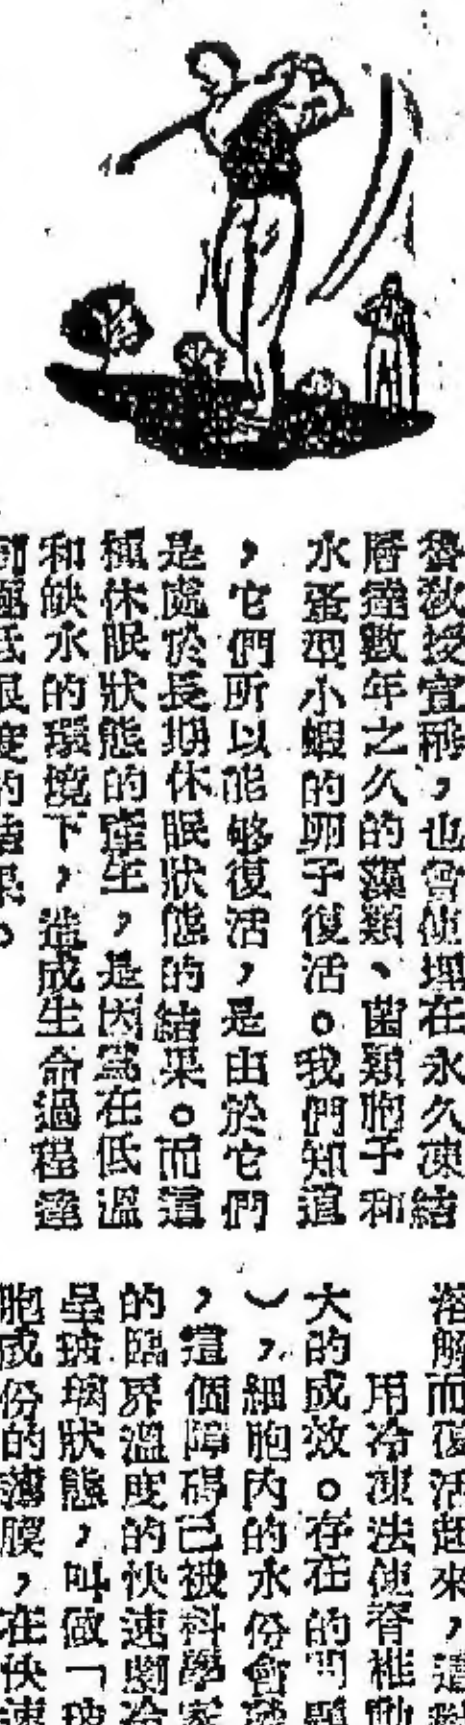 魯敎授宣稱，也會使埋在永久凍結
層達數年之久的藻類、菌類胞子和
水蚤型小蝦的卵子復活。我們知道
，它們所以能够復活，是由於它們
是處於長期休眠狀態的結果。而這
種休眠狀態的產生，是因爲在低溫
和缺水的環境下，造成生命過程達
到極低限度的結果。
溶解而復活起來，這
用冷凍法使脊椎動
大的成效。存在的問題
），細胞內的水份會
，這個障碍已被科學家
的臨界溫度的快速劇冷
呈玻璃狀態，叫做「玻
胞成份的薄膜，在快速